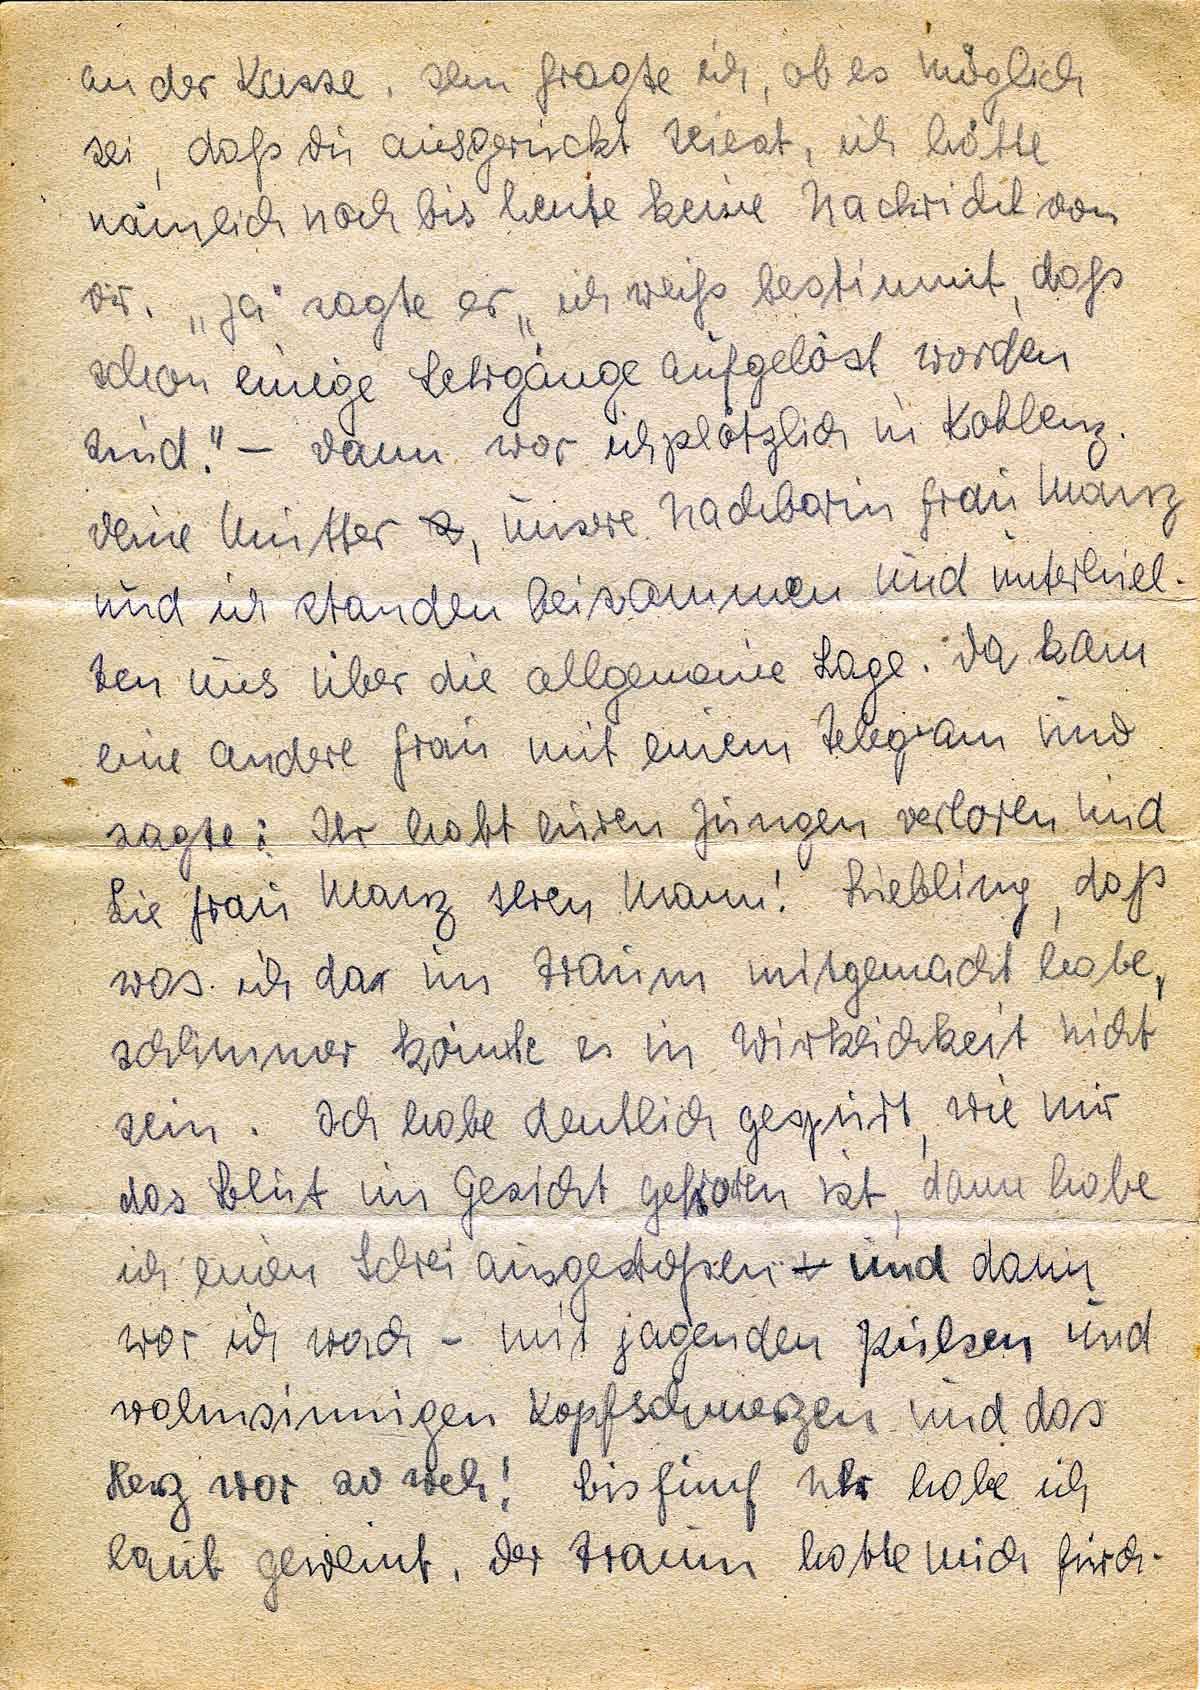 an der Kasse. den fragte ich, ob es möglich
sei, daß du ausgerückt seiest, ich hätte
nämlich noch bis heute keine Nachricht von
dir. „ja" sagte er „ich weiß bestimmt, daß
schon einige Lehrgänge aufgelöst worden
sind." – dann war ich plötzlich in Koblenz.
deine Mutter, unsere Nachbarin Frau Manz
und ich standen beisammen und unterhiel-
ten uns über die allgemeine Lage. da kam
eine andere Frau mit einem Telegram und
sagte: Ihr habt euren Jungen verloren und
Sie Frau Manz Ihren Mann! Liebling, daß
was ich da im Traum mitgemacht habe,
schlimmer könnte es in Wirklichkeit nicht
sein. Ich habe deutlich gespürt, wie mir
das Blut im Gesicht gefroren ist, dann habe
ich einen Schrei ausgestoßen – und dann
war ich wach – mit jagenden Pulsen und
wahnsinnigen Kopfschmerzen und das
Herz war so weh! bis fünf Uhr habe ich
laut geweint. der Traum hatte mich fürch-